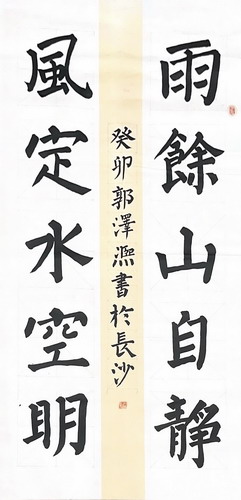 雨餘山自靜
風定水空明
癸卯郭澤澀書於長沙